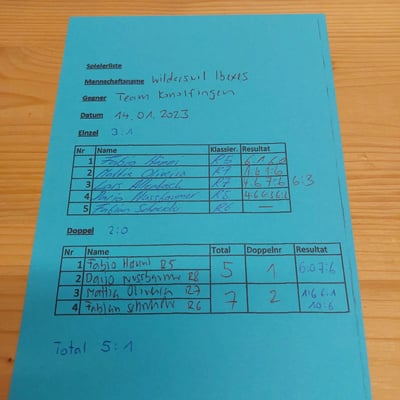 Spielerliste
Mannschaftsname Wilderswil Ibexes
Gegner Team Konolfingen
Datum 14.01.2023
Einzel 3:1
Nr Name Klassier. Resultat
1 Fabio R5 6:1 6:0
2 Mattia Oliveira R7 1:6 1:6
3 Lars R7 4:6 7:6 6:3
4 Dario Nussbaumer R8
5 Fabian R6 —
Doppel 2:0
Nr Name Total Doppelnr Resultat
1 Fabio R5 5 1 6:0 7:6
2 Dario Nussbaumer R8
3 Mattia Oliveira R7 7 2 1:6 6:1
4 Fabian R6 10:6
Total 5:1